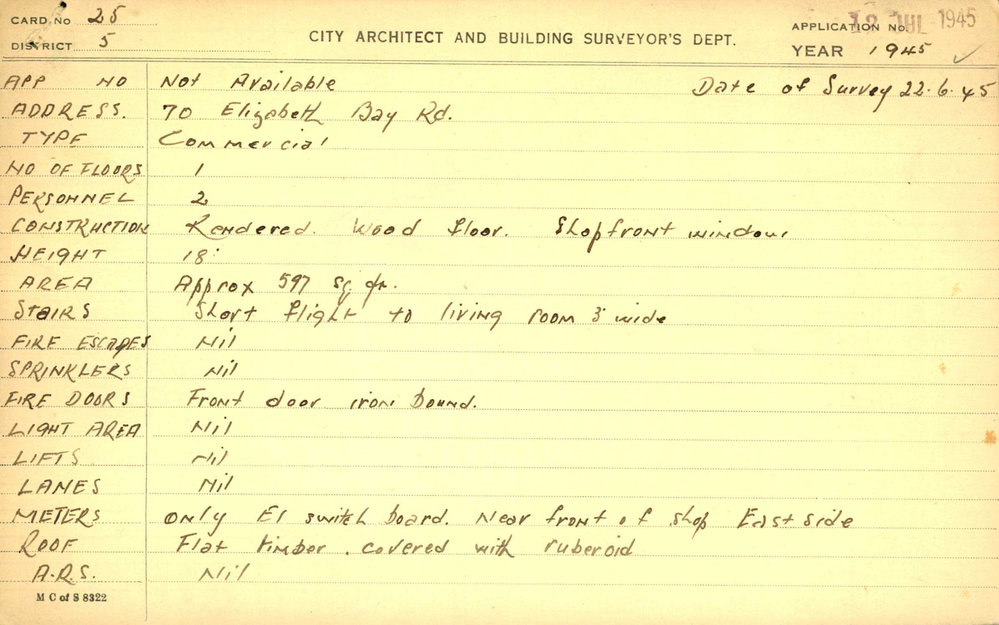 CARD. NO 25
12 JUL 1945
APPLICATION NO.
DISTRICT 5
CITY ARCHITECT AND BUILDING SURVEYOR'S DEPT.
YEAR 1945 ✓
APP NO Not Available Date of Survey 22.6.45
ADDRESS. 70 Elizabeth Bay Rd.
TYPE Commercial
NO OF FLOORS 1
PERSONNEL 2
CONSTRUCTION Rendered. Wood floor. Shopfront windows
HEIGHT 18'
AREA Approx 597 sq. ft.
STAIRS Short flight to living room 3' wide
FIRE ESCAPES Nil
SPRINKLERS Nil
FIRE DOORS Front door iron bound.
LIGHT AREA Nil
LIFTS Nil
LANES Nil
METERS Only El switch board. Near front of shop East side
ROOF Flat timber. covered with ruberoid
A.R.S. Nil
M C of S 8322